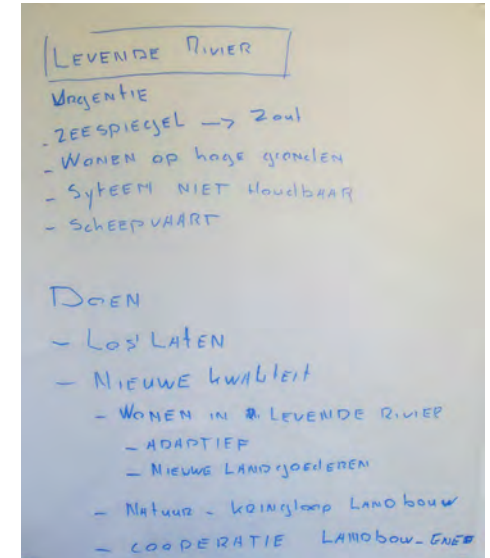 LEVENDE RIVIER
URGENTIE
- ZEESPIEGEL -> Zout
- WONEN op hoge gronden
- SyTEEM NIET HoudbAAR
- ScHEEPVAART
DOEN
- Los LATEN
- NIEUWE kwALiteit
- WONEN IN LEVENDE RIVIER
- ADAPTIEF
- NIEUWE LANDgOEdEREN
- NAtuuR - kRingloop LANDbouw
- COOPERATIE LANDbouw - ENER